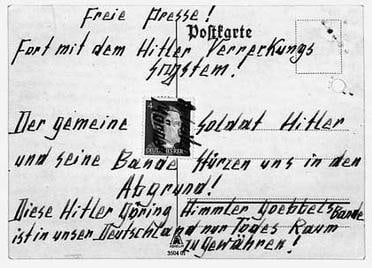 Freie Presse!
Postkarte
Fort mit dem Hitler Verrerkungs
System!
4
Der gemeine Soldat Hitler
und seine Bande Stürzen uns in den
Abgrund!
Diese Hitler Göring Himmler Goebbels Bande
ist in unser Deutschland nur Todes Raum
zu gewähren!